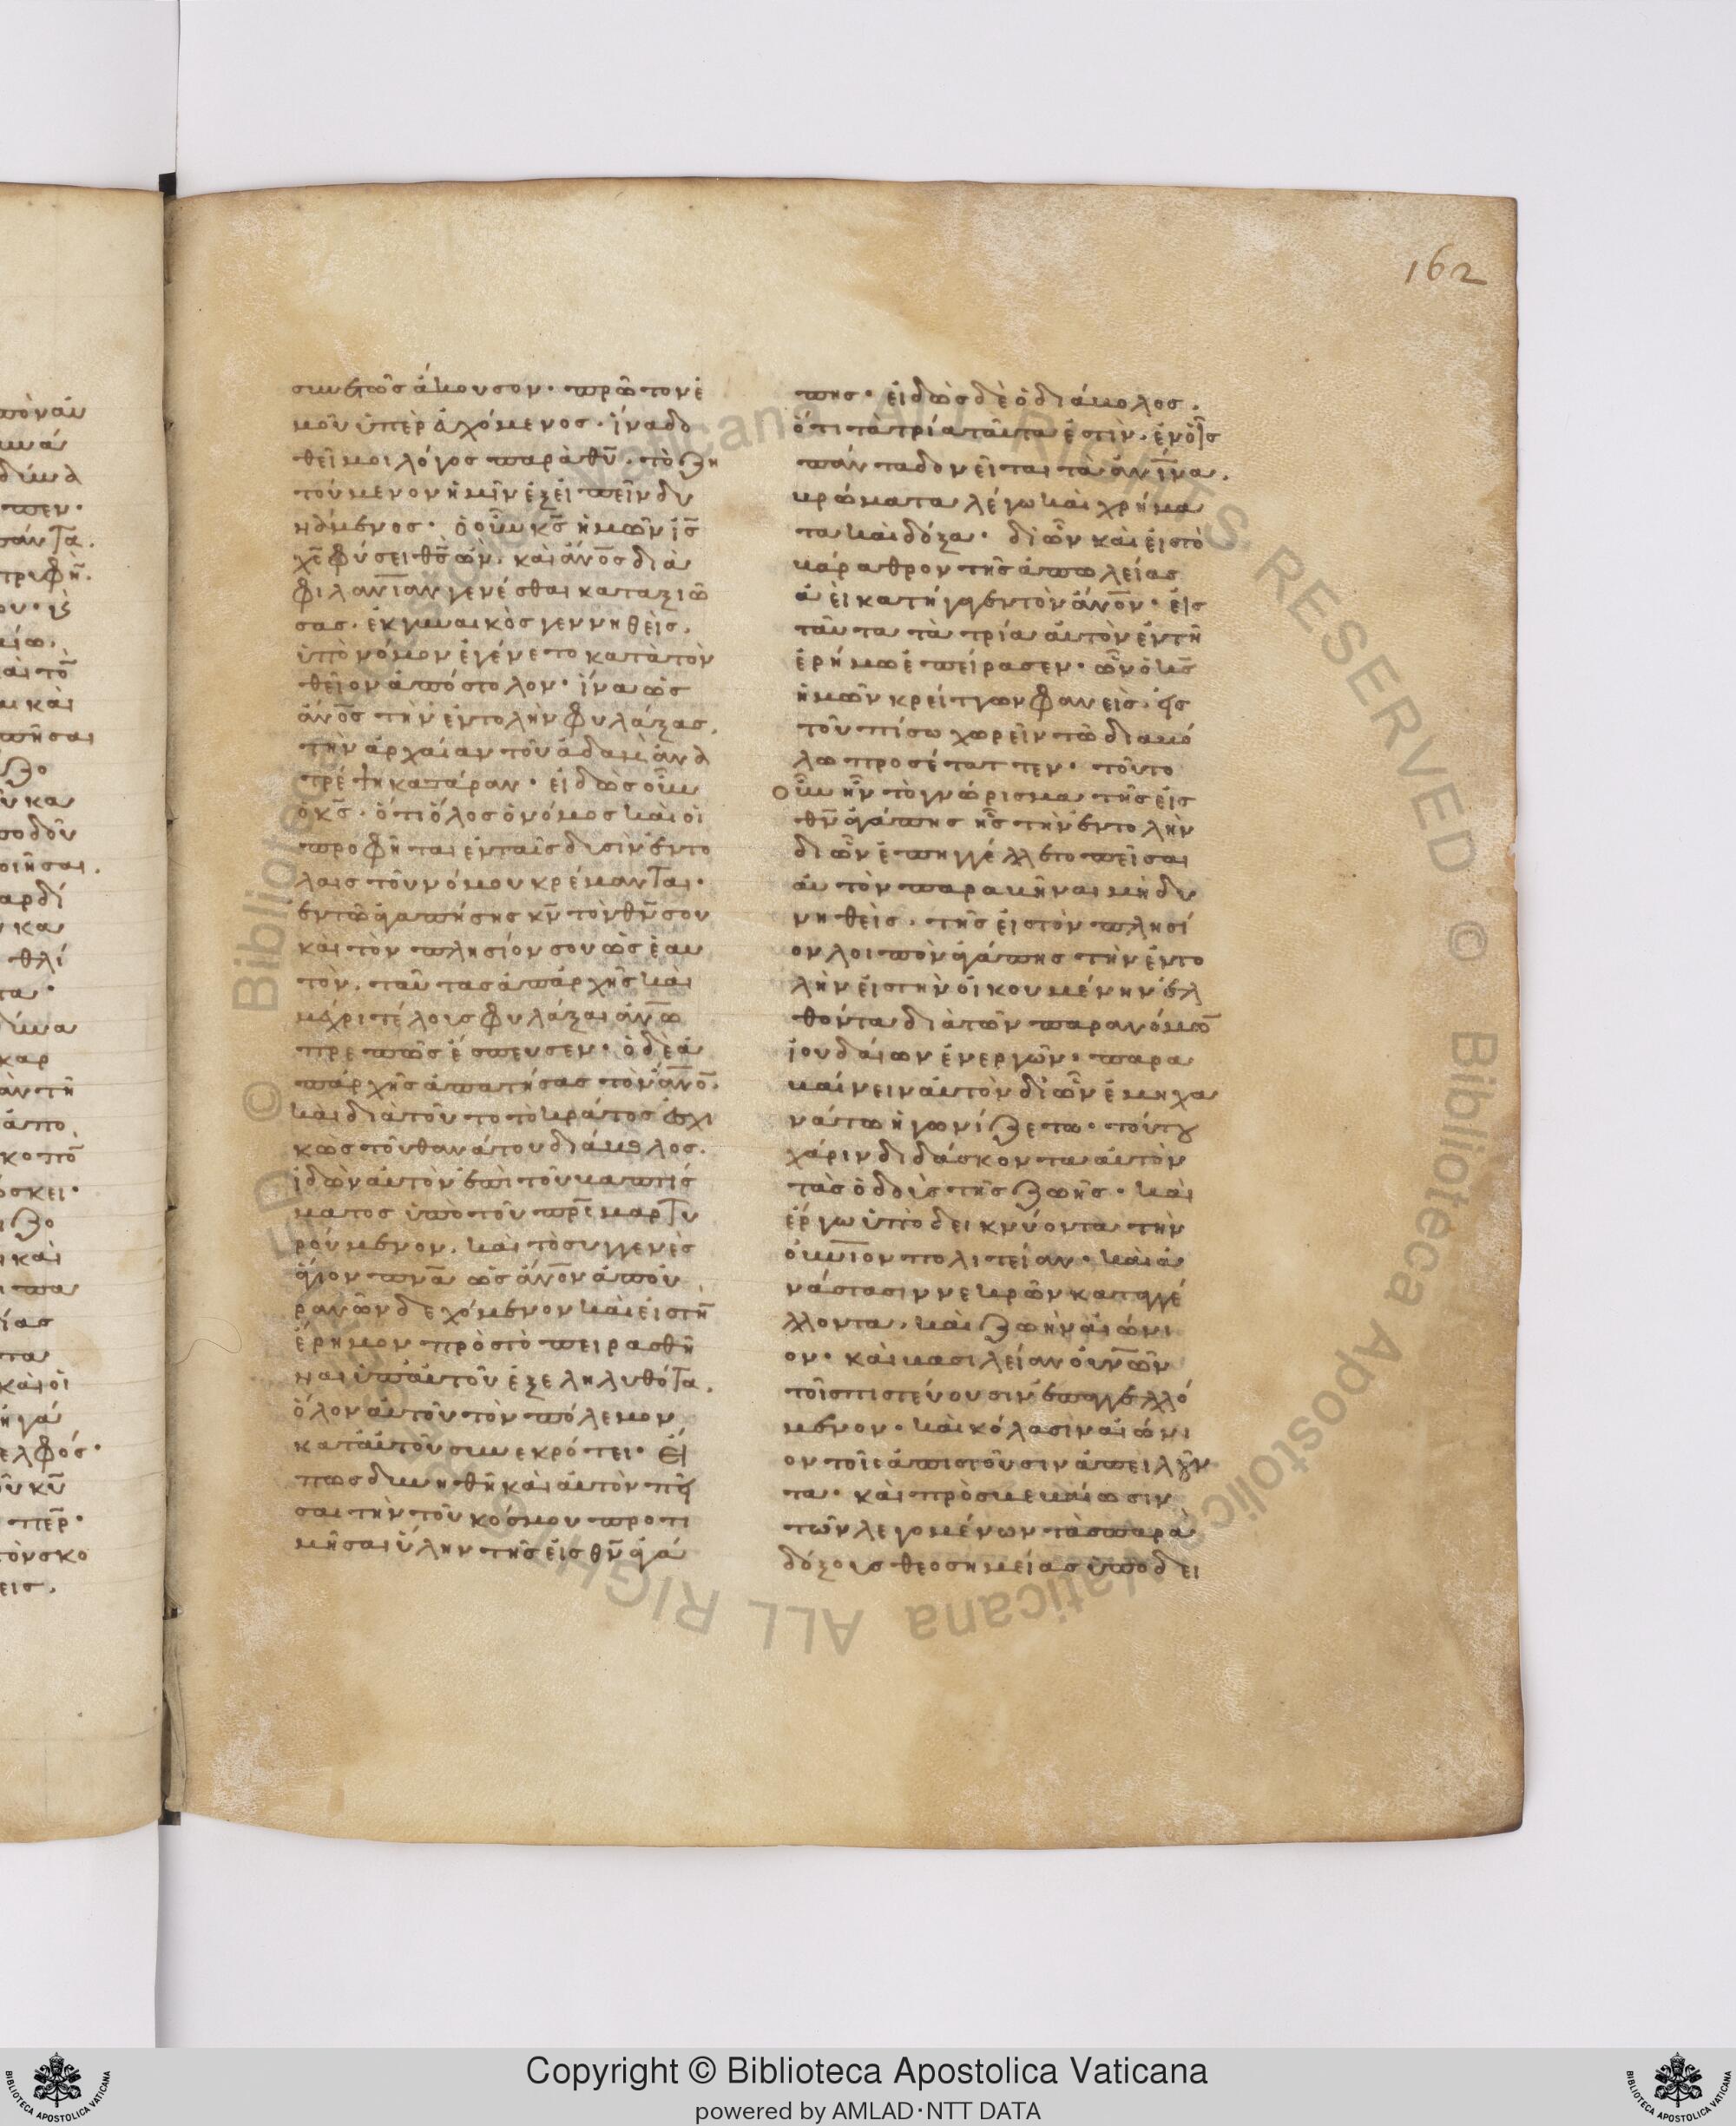 162
συνετῶς ἄκουσον· πρῶτον ἐ
μοῦ ὑπερἀχόμενος· ἵνα δο
θεῖ μοι λόγος παρὰ θῦ· τὸ ζη
τούμενον ἡμῖν ἐξειπεῖν δυ
νάμενος· ὁ οὖν κς ἡμῶν ις
χς φύσει θς ὢν· καὶ ἄνος διὰ
φιλανιαν γενέσθαι καταξιώ
σας· ἐκ γυναικὸς γεννηθεὶς·
ὑπὸ νόμον ἐγένετο κατὰ τὸν
θεῖον ἀπόστολον· ἵνα ὡς
ἄνος τὴν ἐντολὴν φυλάξας,
τὴν ἀρχαίαν τοῦ ἀδαμ ἀνα
τρέψη κατάραν· εἰδὼς οὖν
ὁ κς· ὅτι ὅλος ὁ νόμος καὶ οἱ
προφῆται ἐν ταῖς δυσὶν ἐντο
λαῖς τοῦ νόμου κρέμανται·
ἐν τῶ ἀγαπήσης κν τὸν θν σου
καὶ τὸν πλησίον σου ὡς ἑαυ
τὸν, ταύτας ἀπ' ἀρχῆς καὶ
μέχρι τέλους φυλάξαι ἀνω
πρεπῶς ἔσπευσεν· ὁ δὲ ἀ
π' ἀρχῆς ἀπατήσας τὸν ἄνον·
καὶ διὰ τοῦτο τὸ κράτος ἐσχι
κὼς τοῦ θανάτου διάβολος·
ἰδὼν αὐτὸν ἐπὶ τοῦ βαπτίσ
ματος ὑπὸ τοῦ πρς μαρτυ
ρούμενον, καὶ τὸ συγγενὲς
ἅγιον πνα ὡς ἄνον ἀπ' οὐ
ρανῶν δεχόμενον καὶ εἰς τὴν
ἔρημον πρὸς τὸ πειρασθῆ
ναι ὑπ' αὐτοῦ ἐξεληλυθότα,
ὅλον αὐτοῦ τὸν πόλεμον
κατ' αὐτοῦ συνεκρότει· εἴ
πως δυνηθῆ καὶ αὐτὸν πεῖ
σαι τὴν τοῦ κόσμου προτι
μῆσαι ὕλην τῆς εἰς θν ἀγά
πης· εἰδὼς δὲ ὁ διάβολος,
ὅτι τὰ τρία ταῦτα ἐστὶν, ἐν οἷς
πάντα δονεῖται τὰ ἀνινα,
βρώματα λέγω καὶ χρήμα
τα καὶ δόξα· δι' ὧν καὶ εἰς τὸ
βάραθρον τῆς ἀπωλείας
ἀεὶ κατῆγεν τὸν ἄνον· εἰς
ταῦτα τὰ τρία αὐτὸν ἐν τῆ
ἐρήμω ἐπείρασεν· ὧν ὁ κς
ἡμῶν κρείττων φανεὶς, εἰς
τοὐπίσω χωρεῖν τῶ διαβό
λω προσέταττεν· τοῦτο
οὖν ἦν τὸ γνώρισμα τῆς εἰς
θν ἀγάπης ἧς τὴν ἐντολὴν
δι' ὧν ἐπηγγέλλετο πεῖσαι
αὐτὸν παραβῆναι μὴ δυ
νηθεὶς, τῆς εἰς τὸν πλησί
ον λοιπὸν ἀγάπης τὴν ἐντο
λὴν εἰς τὴν οἰκουμένην ἐλ
θόντα διὰ τῶν παρανόμων
ἰουδαίων ἐνεργῶν· παρα
βαίνειν αὐτὸν δι' ὧν ἐμηχα
νάτω ἠγωνίζετω· τούτου
χάριν διδάσκοντα αὐτὸν
τὰς ὁδοὺς τῆς ζωῆς· καὶ
ἔργω ὑποδεικνύοντα τὴν
οὐνιον πολιτείαν· καὶ ἀ
νάστασιν νεκρῶν καταγγέ
λλοντα, καὶ ζωὴν αἰώνι
ον· καὶ βασιλείαν οὐνῶν
τοῖς πιστεύουσιν ἐπαγγελλό
μενον· καὶ κόλασιν αἰώνι
ον τοῖς ἀπιστοῦσιν ἀπειλοῦν
τα· καὶ πρὸς βεβαίωσιν
τῶν λεγομένων τὰς παρα
δόξους θεοσημείας ὑποδει
Copyright © Biblioteca Apostolica Vaticana
powered by AMLAD·NTT DATA